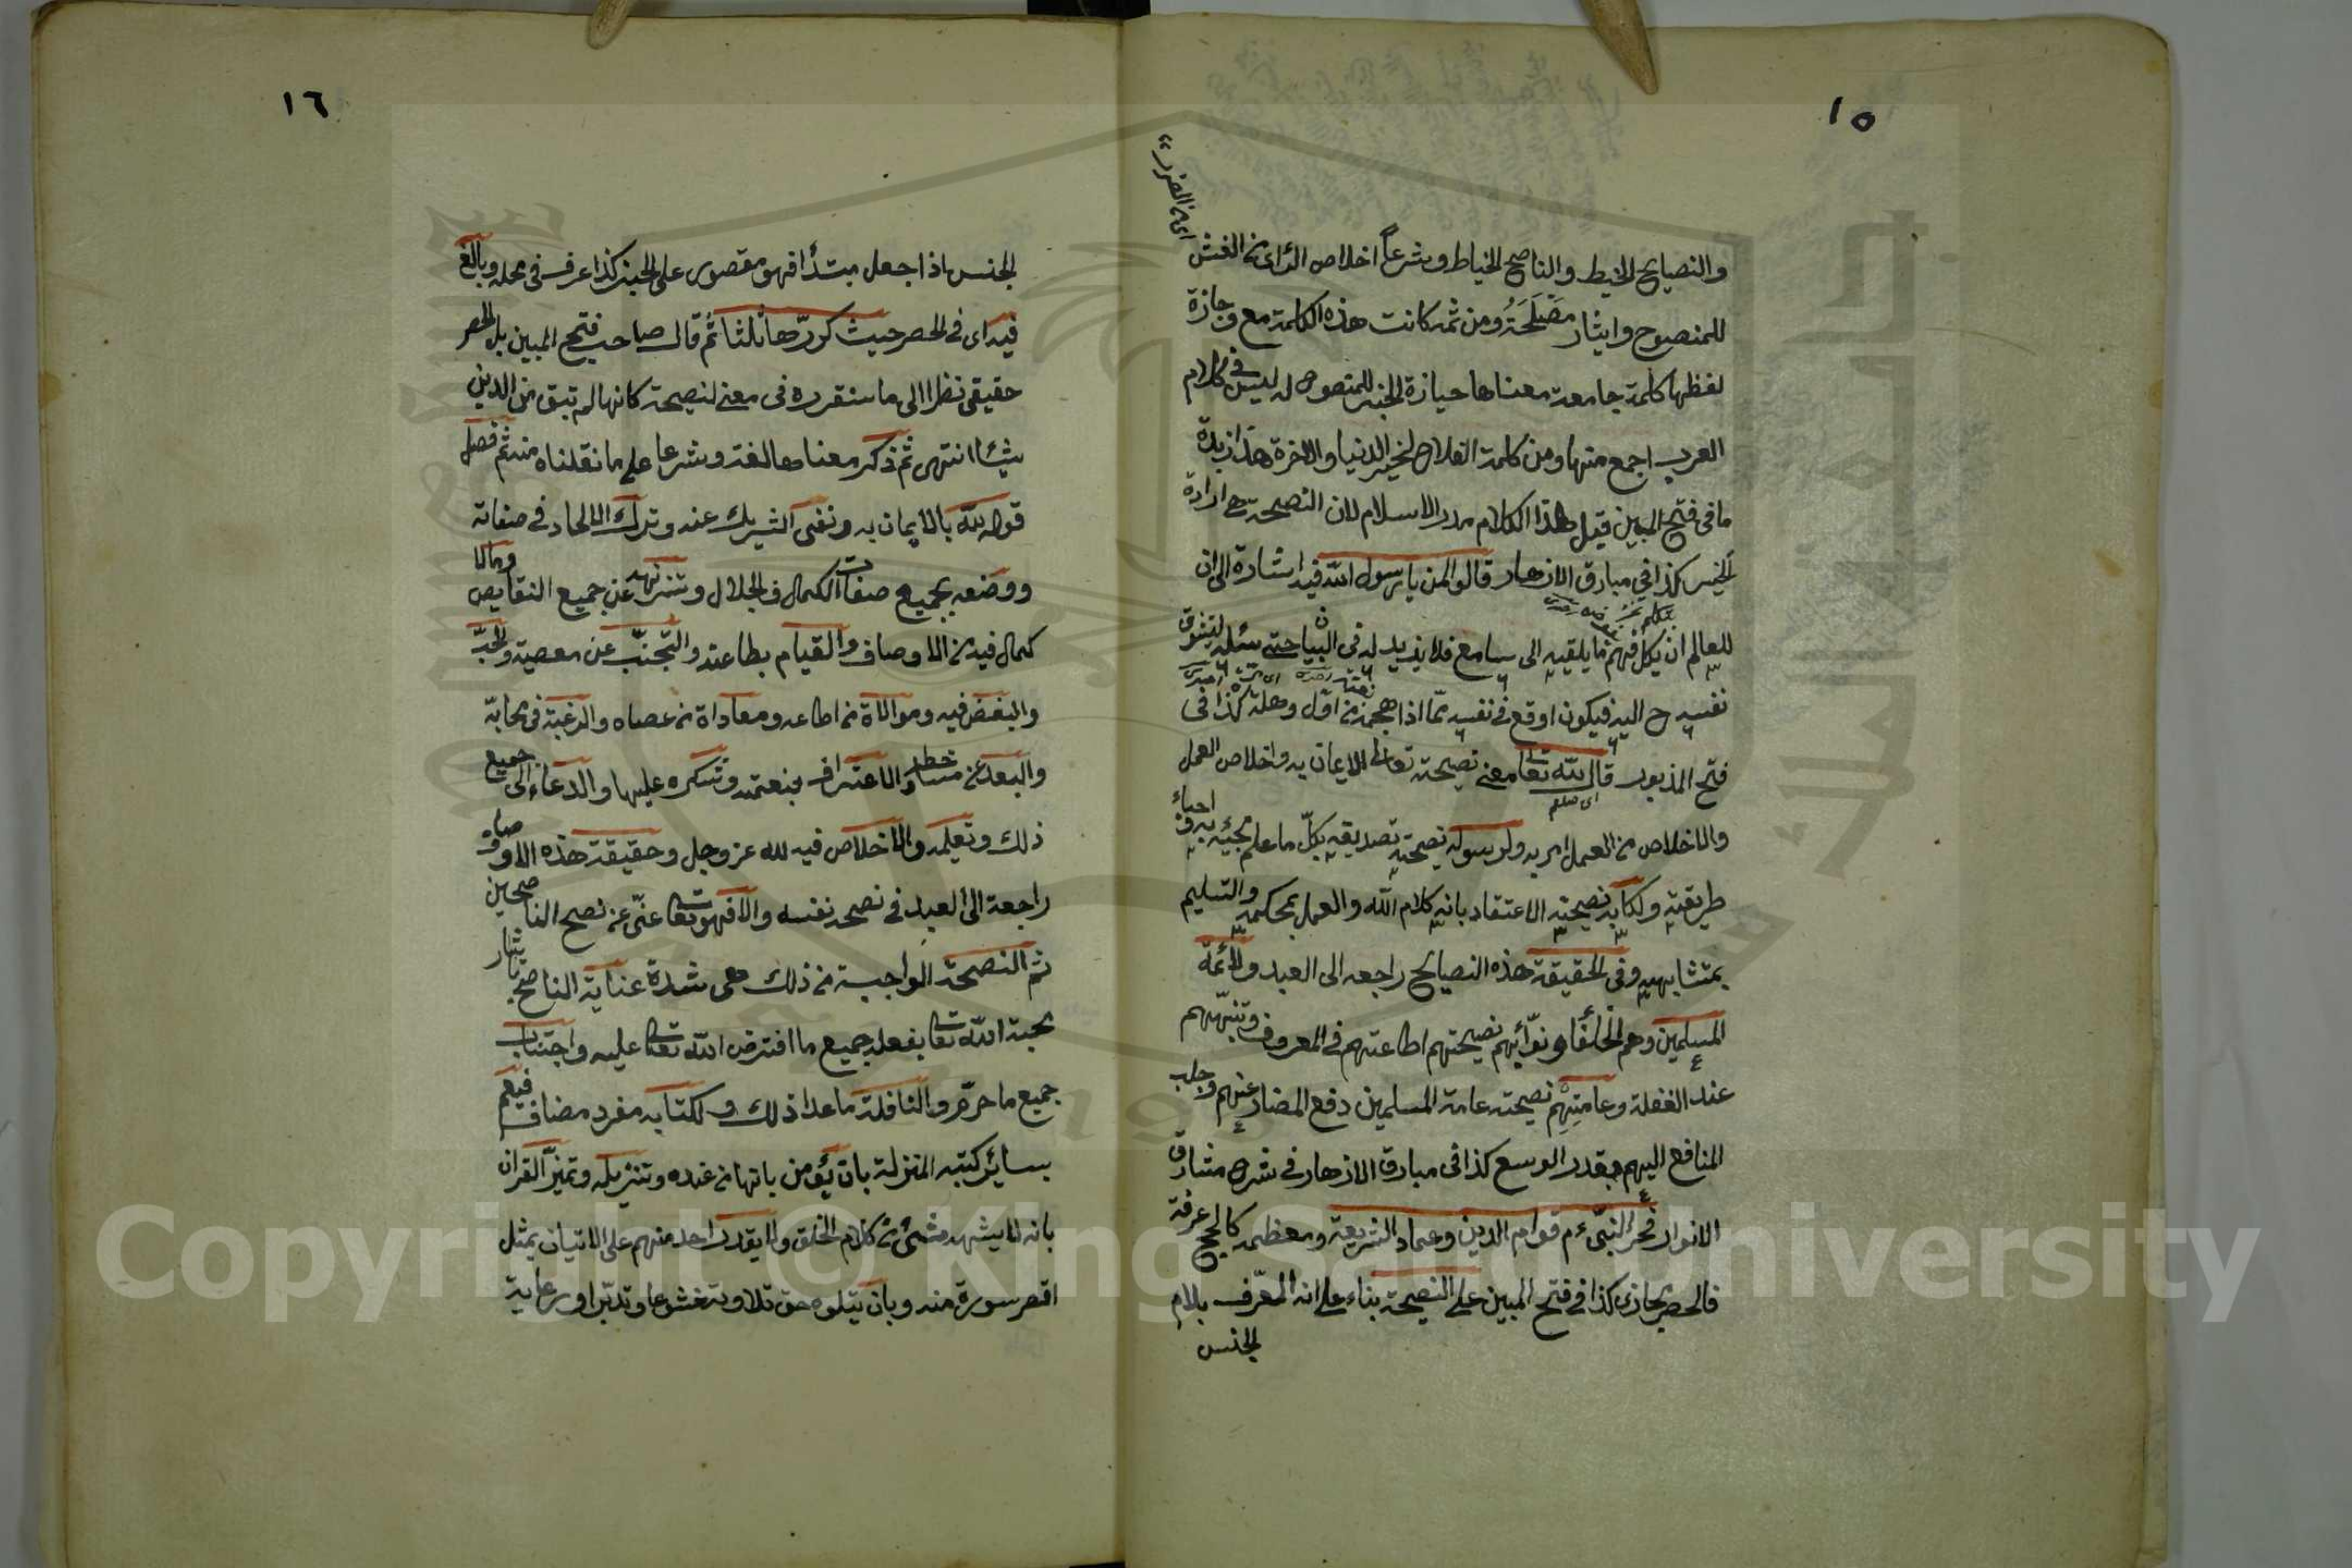 ١٥
اى من الضرر
والنصايح الخيط والناصح الخياط وشرعاً اخلاص الرأى من الغش
للمنصوح وايثار مَصْلَحَتُه ومن ثمه كانت هذه الكلمة مع وجازة
لفظها كلمة جامعة معناها حيازة الخير للمنصوص له ليس فى كلام
العرب اجمع منها ومن كلمة الفلاح لخير الدنيا والاخرة هذا زبدة
ما فى فتح المبين قيل هذا الكلام مدر الاسلام لان النصحة هى ارادة
الخير كذا في مبارق الازهار قالوا لمن يا رسول الله فيه اشارة الى ان
للعالم ان يكل فهم ما يلقيه الى سامع فلا يزيد له فى البيان حتى سئله لتشوق
نفسه ح اليه فيكون اوقع فى نفسه ممّا اذا هجمه من اوّل وهلة كذا فى
فتح المذبور قال لله تعا معنى نصيحته تعالى الايمان به واخلاص العمل
اى صلعم
والاخلاص من العمل امر به ولرسوله نصيحته تصديقه بكلّ ما علم مجيئه به واحياء
طريقته ولكتابه نصيحته الاعتقاد بانه كلام الله والعمل بمحكمه والتسليم
بمتشابهه وفى الحقيقة هذه النصايح راجعه الى العبد ولائمّة
المسلمين وهم الخلفاء ونوّابهم نصيحتهم اطاعتهم فى المعروف وتنبّههم
عند الغفلة وعامتهم نصيحته عامة المسلمين دفع المضار عنهم وجلب
المنافع اليهم بقدر الوسع كذا فى مبارق الازهار فى شرح مشارق
الانوار فخر النبىّ ءم قوام الدين وعماد الشريعة ومعظمه كالحج عرفة
فالحصر مجازى كذا فى فتح المبين على النصيحة بناء على انه المعّرف بلام
الجنس
١٦
الجنس اذا جعل مبتدأ فهو مقصور على الخبر كذا عرف فى محله وبالغ
فيه اى فى الحصر حيث كررّها ثلثا ثم قال صاحب فتح المبين بل الحصر
حقيقى نظرا الى ما سنقرره فى معنى لنصيحة كانها لم تبق من الدين
شيئا انتهى ثم ذكر معناها لغة وشرعا على ما نقلناه منه ثم فصل
قوله لله بالايمان به ونفى الشريك عنه وترك الالحاد فى صفاته
ووصفه بجميع صفات الكمال والجلال وتنزيهه عن جميع النقايص ومالا
كمال فيه من الاوصاف والقيام بطاعته والتجنّب عن معصيته والحبّ
والبغض فيه وموالاة من اطاعه ومعاداة من عصاه والرغبة فى محابّه
والبعد من مساخطه والاعتراف بنعمته وشكره عليها والدعاء الى جميع
ذلك وتعليمه والاخلاص فيه لله عز وجل وحقيقة هذه الاوصاف
راجعة الى العبد فى نصحه نفسه والا فهو تعا غنّى عن نصح الناصحين
ثم النصحة الواجبة من ذلك هى شدة عناية الناصح بايثار
محبة الله تعا بفعله جميع ما افترض الله تعا عليه واجتناب
جميع ما حرّم والنافلة ما عدا ذلك ولكتابه مفرد مضاف فيعم
بسائر كتبه المنزلة بان يؤمن بانها من عنده وتنزيله وتميّز القران
بانه لا يشبهه شئ من كلام الخلق ولا يقدر احد منهم على الاتيان بمثل
اقصر سورة منه وبان يتلوه حق تلاوته خشوعا وتدبّرا ورعاية